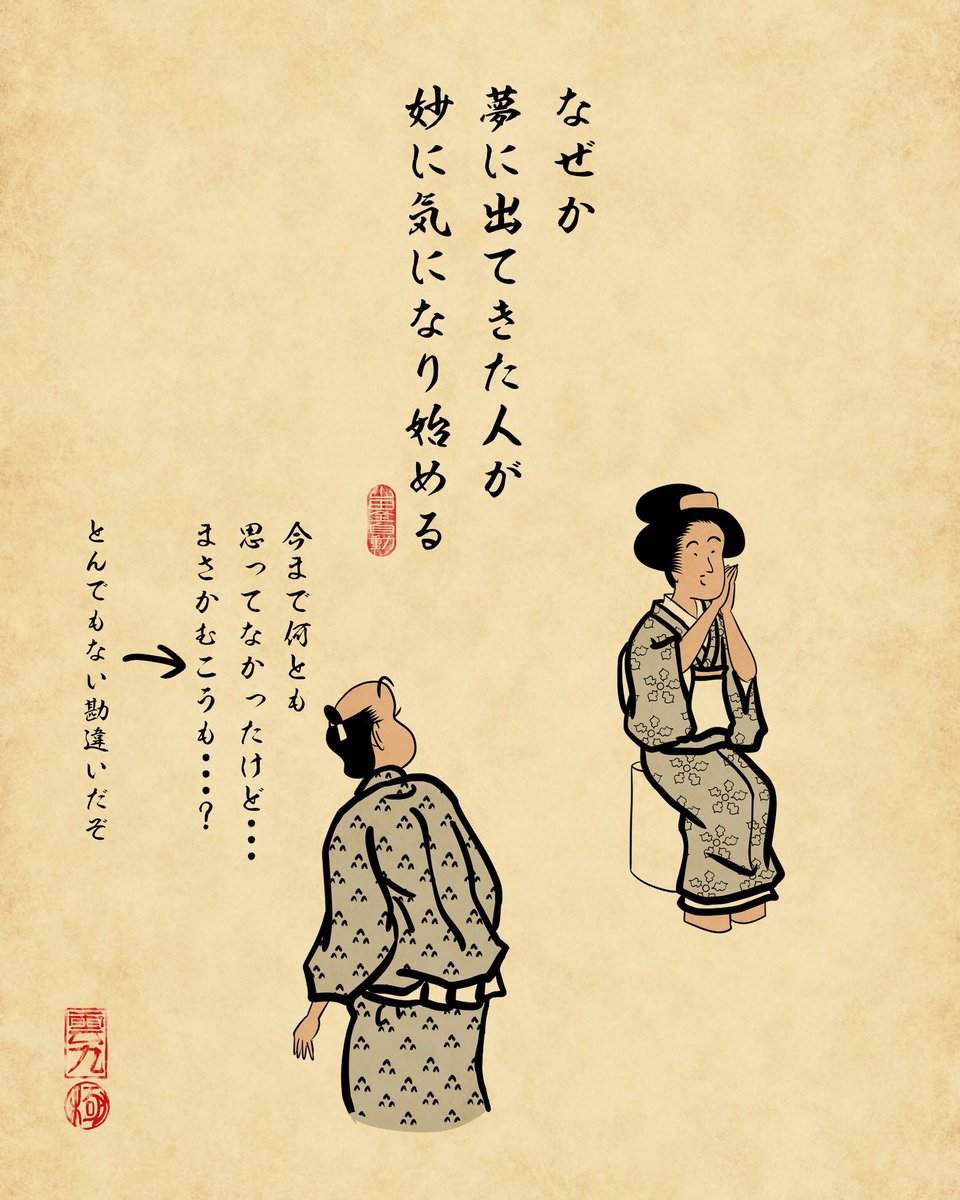 なぜか
夢に出てきた人が
妙に気になり始める
今まで何とも
思ってなかったけど・・・
まさかむこうも・・・・?
とんでもない勘違いだぞ
雲九
極